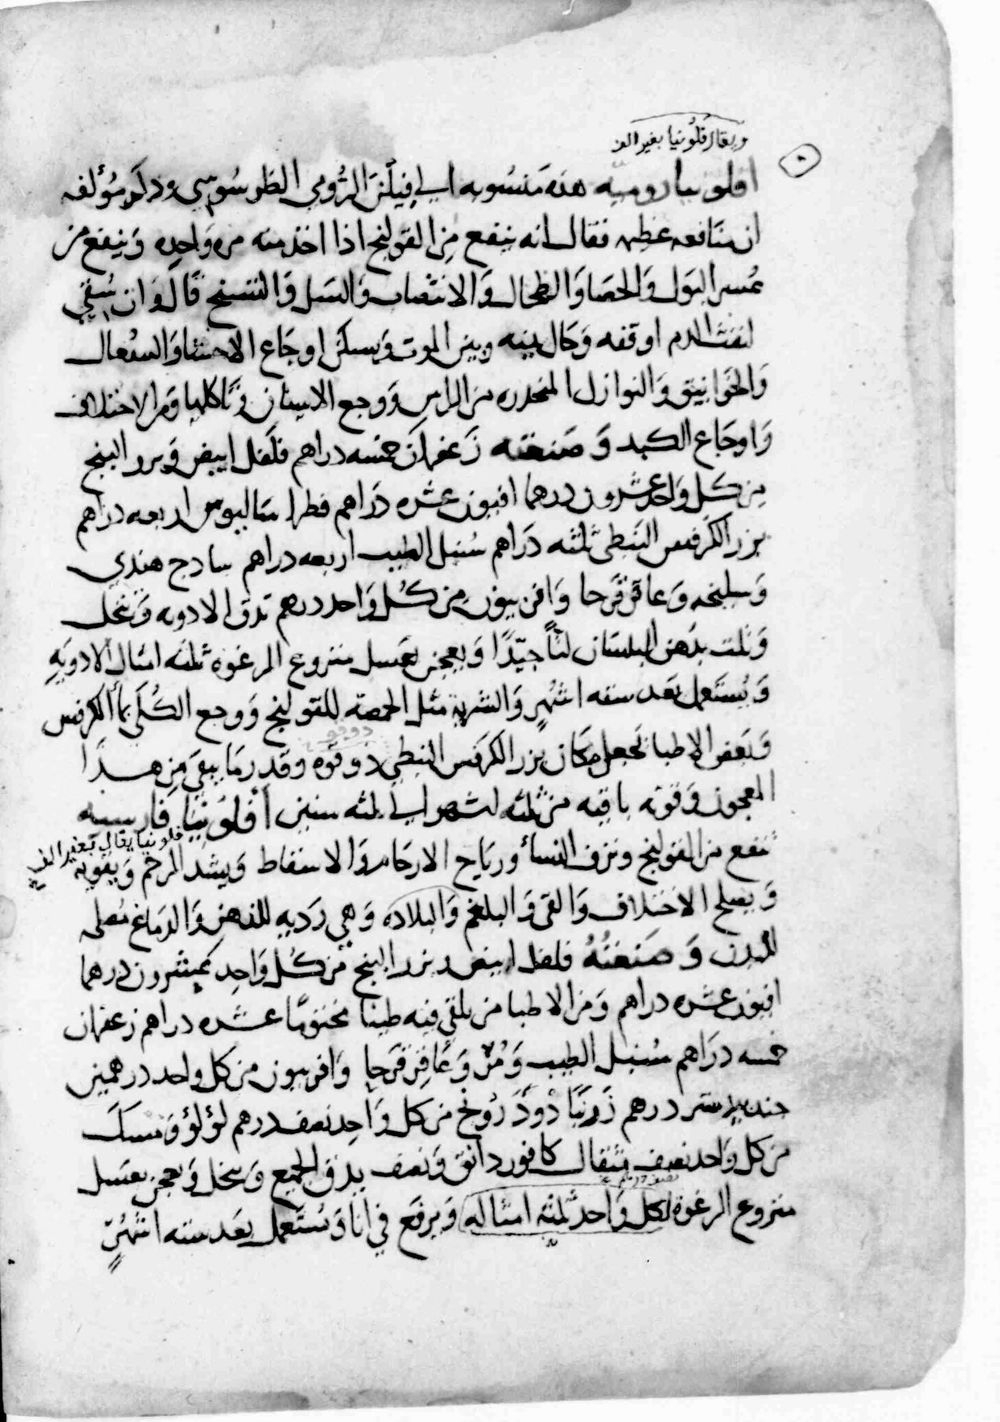 ويقال فلونيا بغير الف
افلونيا روميه هذه منسوبه الى فيلن الرومي الطرسوسي وذكر مؤلفه
ان منافعه عظيمه فقال انه ينفع من القولنج اذا اخذ منه مره واحده وينفع من
عسر البول والحصا والطحال والانتصاب والسل والتشنج قال وان سقي
لنفث الدم اوقفه وحال بينه وبين الموت ويسكن اوجاع الاحشا والسعال
والخوانيق والنوازل المنحدره من الراس ووجع الاسنان وتاكلها ومن الاختلاف
واوجاع الكبد وصنعته زعفران خمسه دراهم فلفل ابيض وبزر البنج
من كل واحد عشرون درهما افيون عشره دراهم فطراساليون اربعه دراهم
بزر الكرفس النبطي ثلثه دراهم سنبل الطيب اربعه دراهم سادج هندي
وسليخه وعاقرقرحا وافربيون من كل واحد درهم تدق الادويه وتنخل
وتلت بدهن البلسان لتا جيدا ويعجن بعسل منزوع الرغوه ثلثه امثال الادويه
ويستعمل بعد سته اشهر والشربه مثل الحمصه للقولنج ووجع الكلى بما الكرفس
وبعض الاطبا يجعل مكان بزر الكرفس النبطي دوقوه وقدر ما يبقى من هذا
المعجون وقوته باقيه من ثلثه اشهر الى ثلثه سنين افلونيا فارسيه
فلونيا يقال بغير الف
تنفع من القولنج ونزف النسا ورياح الارحام والاسقاط ويشد الرحم ويقويه
ويصلح الاختلاف والقي والبلغم والبلاده وهي رديه للذهن والدماغ
للبدن وصنعته فلفل ابيض وبزر البنج من كل واحد عشرون درهما
افيون عشره دراهم ومن الاطبا من يلقي فيه طينا مختوما عشره دراهم زعفران
خمسه دراهم سنبل الطيب ومر وعاقرقرحا وافربيون من كل واحد درهمين
جندبيدستر درهم زرنباد ودرونج من كل واحد نصف درهم لؤلؤ ومسك
من كل واحد نصف مثقال كافور دانق ونصف يدق الجميع وينخل ويعجن بعسل
منزوع الرغوة لكل واحد ثلثة امثاله ويرفع في انا ويستعمل بعد سته اشهر